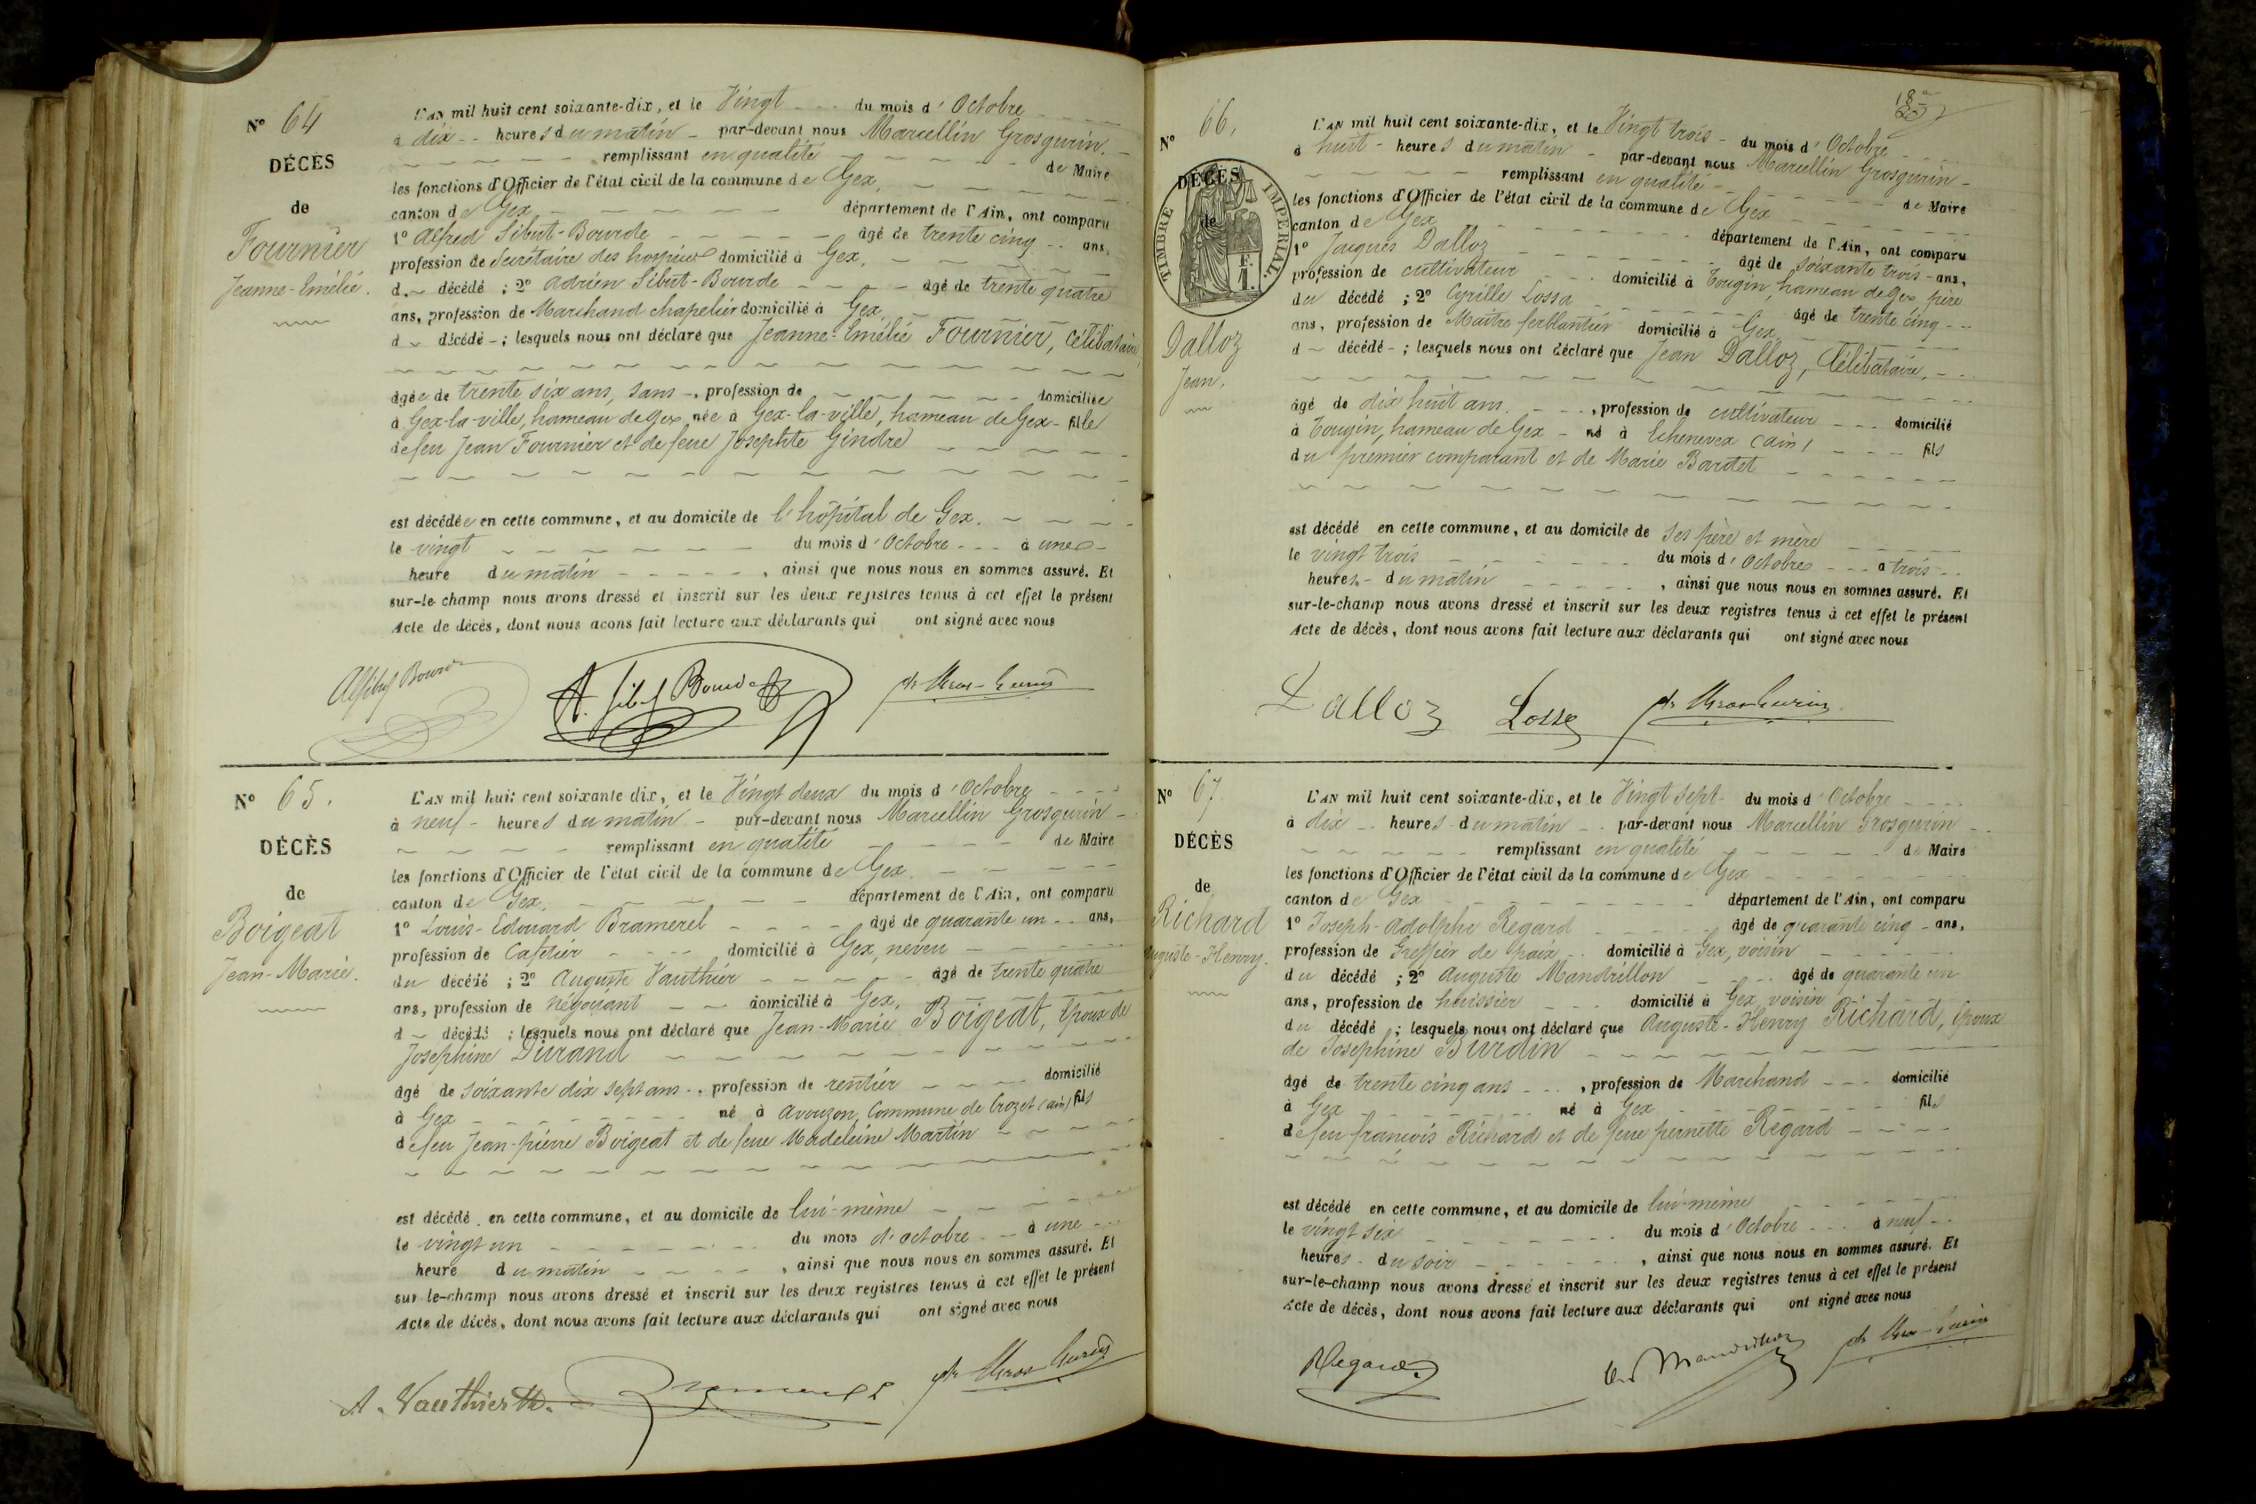 N° 64
DÉCÈS
de
Fournier
Jeanne-Emélie.
L'AN mil huit cent soixante-dix, et le Vingt du mois d'Octobre
à dix heures du matin par-devant nous Marcellin Grosgurin
remplissant en qualité de Maire
les fonctions d'Officier de l'état civil de la commune de Gex,
canton de Gex département de l'Ain, ont comparu
1° Alfred Sibut-Bourde âgé de trente cinq ans,
profession de Secrétaire des hospices domicilié à Gex,
d décédé ; 2° Adrien Sibut-Bourde âgé de trente quatre
ans, profession de Marchand chapelier domicilié à Gex
d décédé ; lesquels nous ont déclaré que Jeanne-Emélie Fournier, Célibataire
âgée de trente six ans, sans profession de domiciliée
à Gex-la-ville, hameau de Gex née à Gex-la-ville, hameau de Gex fille
de feu Jean Fournier et de feue Josephte Gindre
est décédée en cette commune, et au domicile de l'hôpital de Gex.
le vingt du mois d'Octobre à une
heure du matin , ainsi que nous nous en sommes assuré. Et
sur-le-champ nous avons dressé et inscrit sur les deux registres tenus à cet effet le présent
Acte de décès, dont nous avons fait lecture aux déclarants qui ont signé avec nous
A. Sibut Bourde
N° 65.
DÉCÈS
de
Boigeat
Jean-Marie.
L'AN mil huit cent soixante-dix, et le Vingt deux du mois d'Octobre
à neuf heures du matin par-devant nous Marcellin Grosgurin
remplissant en qualité de Maire
les fonctions d'Officier de l'état civil de la commune de Gex
canton de Gex, département de l'Ain, ont comparu
1° Louis-Edouard Bramerel âgé de quarante un ans,
profession de Cafetier domicilié à Gex, neveu
du décédé ; 2° Auguste Vauthier âgé de trente quatre
ans, profession de négoçiant domicilié à Gex,
d décédé ; lesquels nous ont déclaré que Jean-Marie Boigeat, époux de
Josephine Durand
âgé de soixante dix sept ans, profession de rentier domicilié
à Gex né à Avouzon, Commune de Crozet (ain) fils
de feu Jean-pierre Boigeat et de feue Madeleine Martin
est décédé en cette commune, et au domicile de lui-même
le vingt un du mois d'octobre à une
heure du matin , ainsi que nous nous en sommes assuré. Et
sur-le-champ nous avons dressé et inscrit sur les deux registres tenus à cet effet le présent
Acte de décès, dont nous avons fait lecture aux déclarants qui ont signé avec nous
A. Vauthier
N° 66.
DÉCÈS
de
TIMBRE IMPÉRIAL.
Dalloz
Jean.
L'AN mil huit cent soixante-dix, et le Vingt trois du mois d'Octobre
à huit heures du matin par-devant nous Marcellin Grosgurin
remplissant en qualité de Maire
les fonctions d'Officier de l'état civil de la commune de Gex
canton de Gex département de l'Ain, ont comparu
1° Jacques Dalloz âgé de soixante trois ans,
profession de cultivateur domicilié à Tougin, hameau de Gex, père
du décédé ; 2° Cyrille Lossa âgé de trente cinq
ans, profession de Maître ferblantier domicilié à Gex
d décédé ; lesquels nous ont déclaré que Jean Dalloz, Célibataire,
âgé de dix huit ans, profession de cultivateur domicilié
à Tougin, hameau de Gex né à Echenevex (ain) fils
du premier comparant et de Marie Bardet
est décédé en cette commune, et au domicile de ses père et mère
le vingt trois du mois d'Octobre à trois
heures du matin , ainsi que nous nous en sommes assuré. Et
sur-le-champ nous avons dressé et inscrit sur les deux registres tenus à cet effet le présent
Acte de décès, dont nous avons fait lecture aux déclarants qui ont signé avec nous
Dalloz
N° 67
DÉCÈS
de
Richard
Auguste-Henry.
L'AN mil huit cent soixante-dix, et le Vingt sept du mois d'Octobre
à dix heures du matin par-devant nous Marcellin Grosgurin
remplissant en qualité de Maire
les fonctions d'Officier de l'état civil de la commune de Gex
canton de Gex département de l'Ain, ont comparu
1° Joseph-Adolphe Regard âgé de quarante cinq ans,
profession de Greffier de paix domicilié à Gex, voisin
du décédé ; 2° Auguste Mandrillon âgé de quarante un
ans, profession de huissier domicilié à Gex, voisin
du décédé ; lesquels nous ont déclaré que Auguste-Henry Richard, époux
de Josephine Burdin
âgé de trente cinq ans, profession de Marchand domicilié
à Gex né à Gex fils
de feu françois Richard et de feue pernette Regard
est décédé en cette commune, et au domicile de lui-même
le vingt six du mois d'Octobre à neuf
heures du soir , ainsi que nous nous en sommes assuré. Et
sur-le-champ nous avons dressé et inscrit sur les deux registres tenus à cet effet le présent
Acte de décès, dont nous avons fait lecture aux déclarants qui ont signé avec nous
Regard Mandrillon